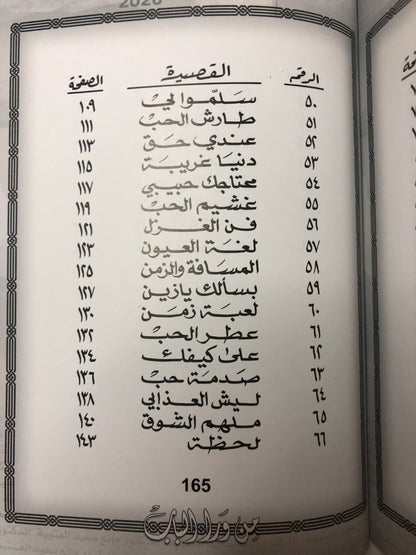 الرقم القصيدة الصفحة
٥٠ سلموا لي ١٠٩
٥١ طارش الحب ١١١
٥٢ عندي حق ١١٣
٥٣ دنيا غريبة ١١٥
٥٤ محتاجك حبيبي ١١٧
٥٥ غشيم الحب ١١٩
٥٦ فن الغزل ١٢١
٥٧ لغة العيون ١٢٣
٥٨ المسافة والزمن ١٢٥
٥٩ بسألك يازين ١٢٧
٦٠ لعبة زمن ١٣٠
٦١ عطر الحب ١٣٢
٦٢ على كيفك ١٣٤
٦٣ صدمة حب ١٣٦
٦٤ ليش العذابي ١٣٨
٦٥ ملهم الشوق ١٤٠
٦٦ لحظة ١٤٣
165
من وراء الباب